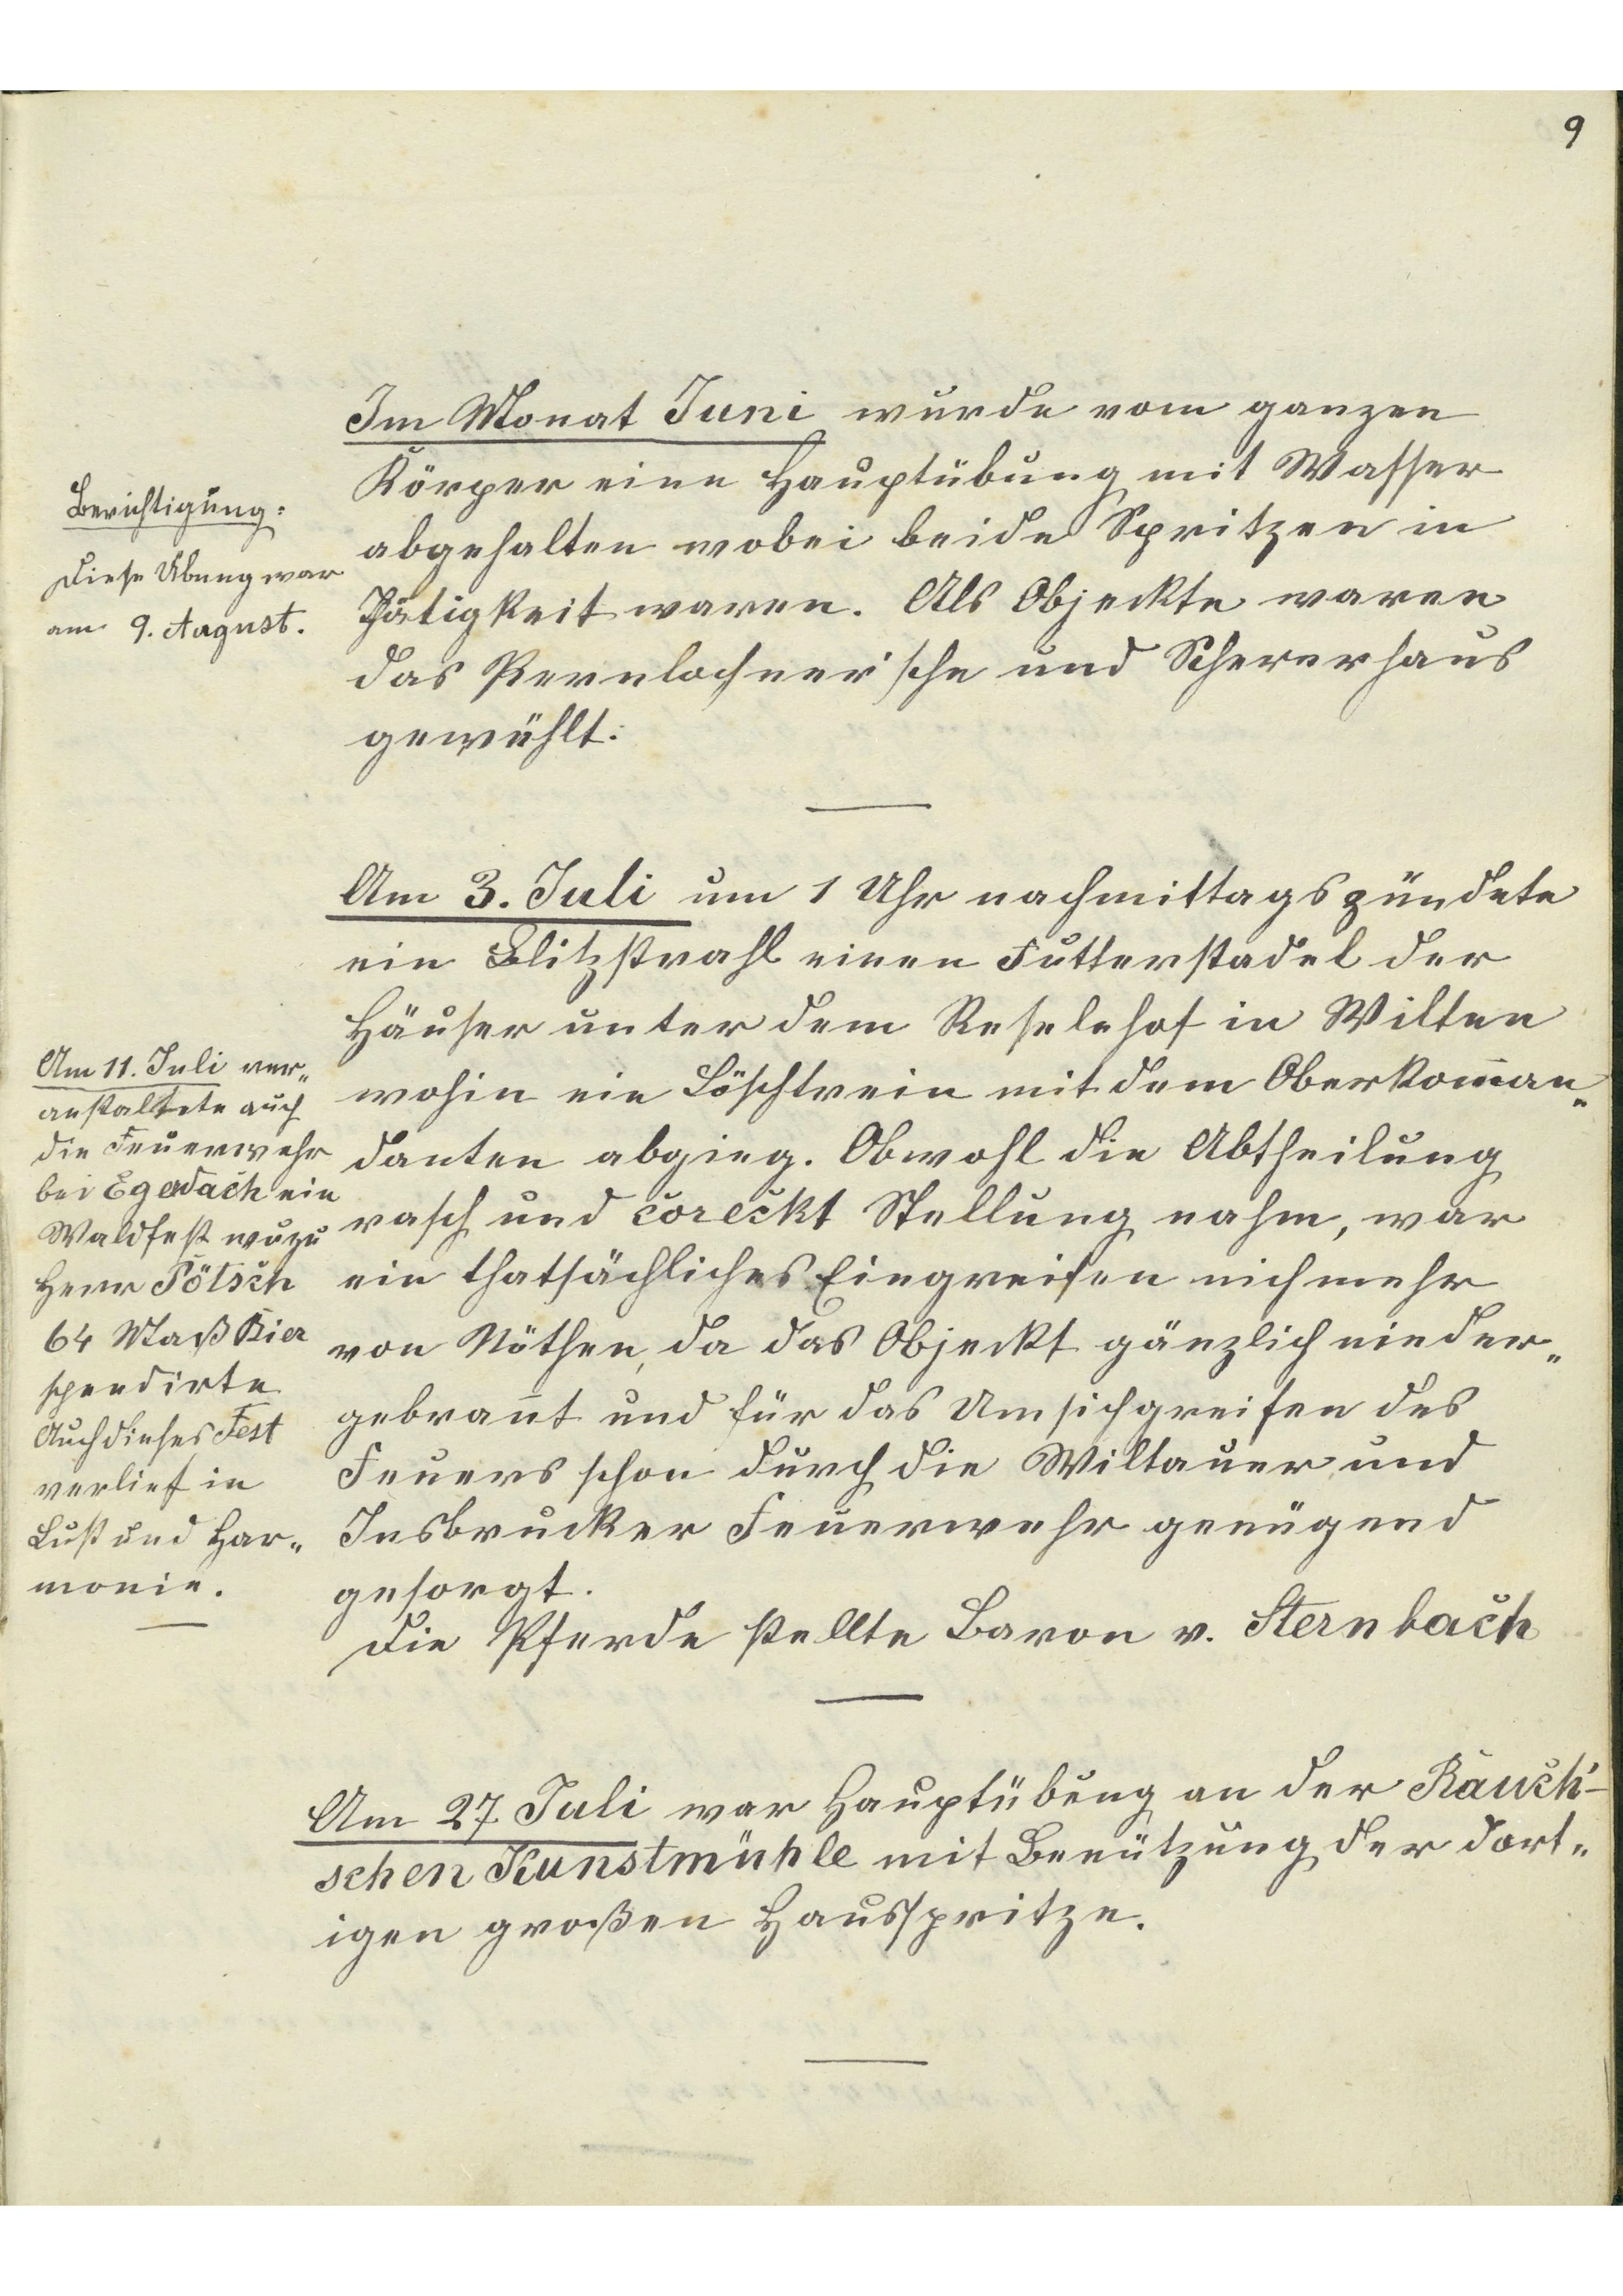 9
Im Monat Juni wurde vom ganzen
Körper eine Hauptübung mit Wasser
abgehalten wobei beide Spritzen in
Thätigkeit waren. Als Objeckte waren
das Pernlochner'sche und Schererhaus
gewählt.
Berichtigung:
Diese Übung war
am 9. August.
Am 3. Juli um 1 Uhr nachmittags zündete
ein Blitzstrahl einen Futterstadel der
Häuser unter dem Reselehof in Wilten
wohin ein Löschtrein mit dem Oberkom̄an„
danten abgieng. Obwohl die Abtheilung
rasch und coreckt Stellung nahm, war
ein thatsächliches Eingreifen nichmehr
von Nöthen, da das Objeckt gänzlich nieder„
gebran̄t und für das Umsichgreifen des
Feuers schon durch die Wiltauer und
Insbrucker Feuerwehr genügend
gesorgt.
Die Pferde stellte Baron v. Sternbach
Am 11. Juli ver„
anstaltete auch
die Feuerwehr
bei Egerdach ein
Waldfest wozu
Herr Pötsch
64 Maß Bier
spendirte
Auch dieses Fest
verlief in
Lust und Har„
monie.
Am 27. Juli war Hauptübung an der Rauch'-
schen Kunstmühle mit Benützung der dort„
igen großen Hausspritze.